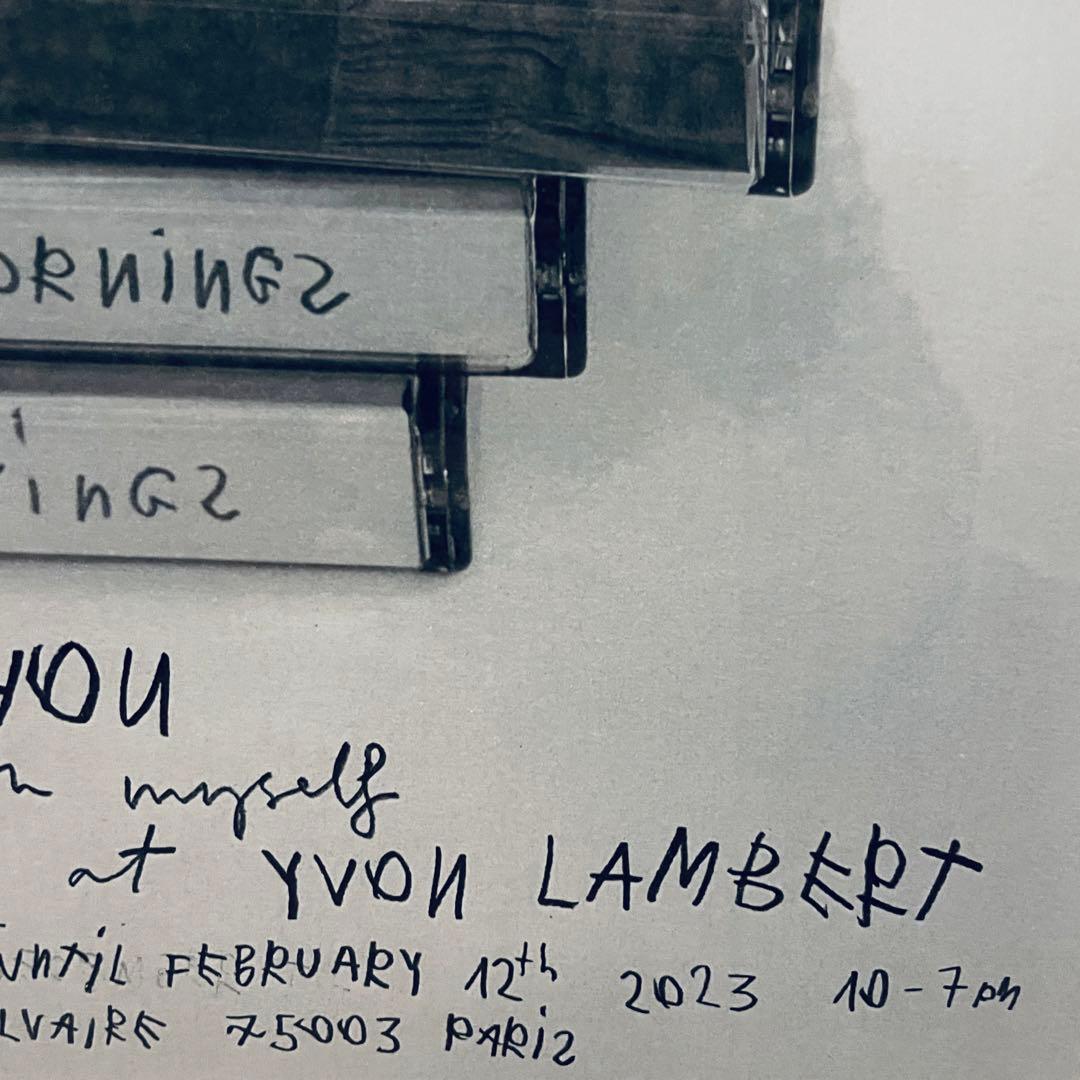 ORNinGS
inGS
YOU
n myself
at YVON LAMBERT
UNTiL FEBRUARY 12th 2023 10-7pm
LVAIRE 75003 PARiS